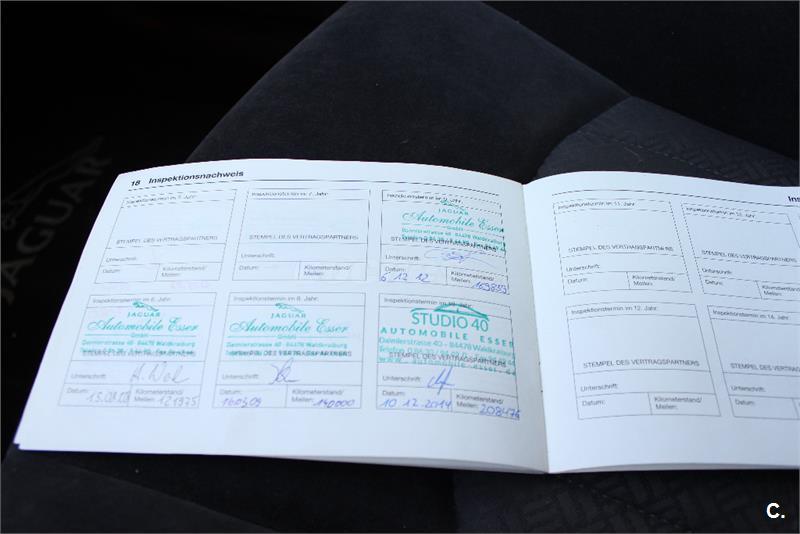 18 Inspektionsnachweis
Inspektionstermin im 5. Jahr:
STEMPEL DES VERTRAGSPARTNERS
Unterschrift:
Datum: Kilometerstand/
Meilen:
Inspektionstermin im 7. Jahr:
STEMPEL DES VERTRAGSPARTNERS
Unterschrift:
Datum: Kilometerstand/
Meilen:
JAGUAR
Automobile Esser
GmbH
Daimlerstrasse 40 - 84478 Waldkraiburg
STEMPEL DES VERTRAGSPARTNERS
Unterschrift:
Datum: Kilometerstand/
6.12.12 Meilen:
Inspektionstermin im 6. Jahr:
JAGUAR
Automobile Esser
GmbH
Daimlerstrasse 40 - 84478 Waldkraiburg
STEMPEL DES VERTRAGSPARTNERS
Unterschrift:
Datum: Kilometerstand/
Meilen: 121975
Inspektionstermin im 8. Jahr:
JAGUAR
Automobile Esser
GmbH
Daimlerstrasse 40 - 84478 Waldkraiburg
STEMPEL DES VERTRAGSPARTNERS
Unterschrift:
Datum: Kilometerstand/
16.03.09 Meilen: 140000
Inspektionstermin im 10. Jahr:
STUDIO 40
AUTOMOBILE ESSER
Daimlerstrasse 40 - 84478 Waldkraiburg
STEMPEL DES VERTRAGSPARTNERS
Unterschrift:
Datum: Kilometerstand/
10.12.2014 Meilen: 208476
Inspektionstermin im 11. Jahr:
STEMPEL DES VERTRAGSPARTNERS
Unterschrift:
Datum: Kilometerstand/
Meilen:
Inspektionstermin im 13. Jahr:
STEMPEL DES VERTRAGSPARTNERS
Unterschrift:
Datum: Kilometerstand/
Meilen:
Inspektionstermin im 12. Jahr:
STEMPEL DES VERTRAGSPARTNERS
Unterschrift:
Datum: Kilometerstand/
Meilen:
Inspektionstermin im 14. Jahr:
STEMPEL DES VERTRAGSPARTNERS
Unterschrift:
Datum: Kilometerstand/
Meilen:
JAGUAR
C.